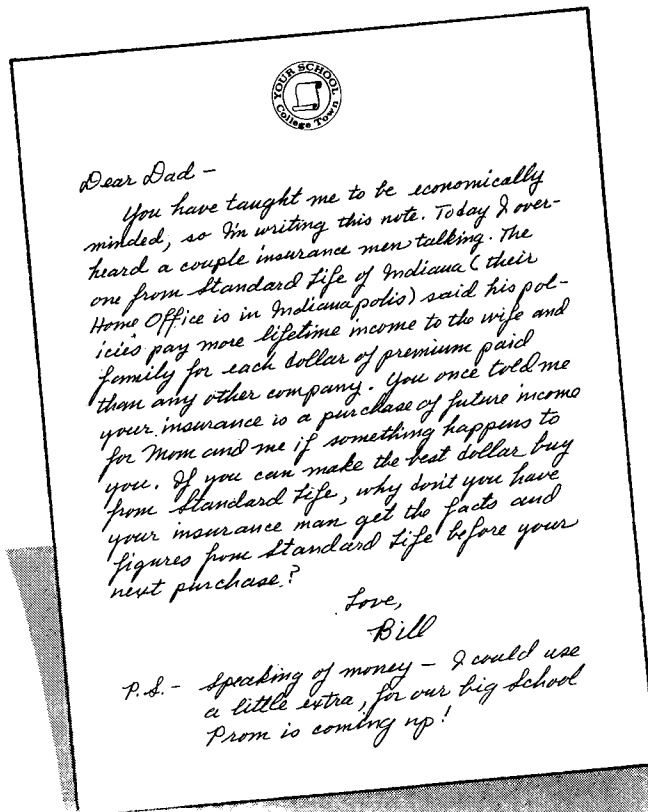 YOUR SCHOOL
College Town
Dear Dad –
You have taught me to be economically
minded, so I'm writing this note. Today I over-
heard a couple insurance men talking. The
one from Standard Life of Indiana (their
Home Office is in Indianapolis) said his pol-
icies pay more lifetime income to the wife and
family for each dollar of premium paid
than any other company. You once told me
your insurance is a purchase of future income
for Mom and me if something happens to
you. If you can make the best dollar buy
from Standard Life, why don't you have
your insurance man get the facts and
figures from Standard Life before your
next purchase?
Love,
Bill
P.S. – Speaking of money – I could use
a little extra, for our big School
Prom is coming up!